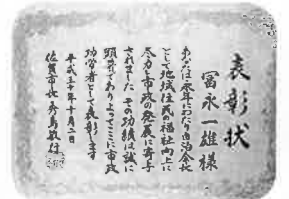 表彰状
冨永一雄様
あなたは永年にわたり自治会長
として地域住民の福祉向上に
尽力し市政の発展に寄与
されました その功績は誠に
顕著でありよってここに市政
功労者として表彰します
平成三十年十月二日
佐賀市長 秀島敏行